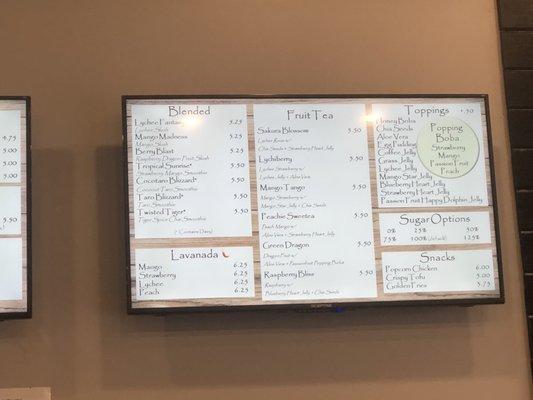 4.75
5.00
5.00
5.00
5.50
5.00
Blended
Lychee Fantasy 5.25
Lychee Slush
Mango Madness 5.25
Mango Slush
Berry Blast 5.25
Raspberry Dragon Fruit Slush
Tropical Sunrise* 5.50
Strawberry Mango Smoothie
Cocotaro Blizzard* 5.50
Coconut Taro Smoothie
Taro Blizzard* 5.50
Taro Smoothie
Twisted Tiger* 5.50
Tiger Spice Chai Smoothie
(* Contains Dairy)
Lavanada
Mango 6.25
Strawberry 6.25
Lychee 6.25
Peach 6.25
Fruit Tea
Sakura Blossom 5.50
Lychee Rose w/
Chia Seeds + Strawberry Heart Jelly
Lychiberry 5.50
Lychee Strawberry w/
Lychee Jelly + Aloe Vera
Mango Tango 5.50
Mango Strawberry w/
Mango Star Jelly + Chia Seeds
Peachie Sweetea 5.50
Peach Mango w/
Aloe Vera + Strawberry Heart Jelly
Green Dragon 5.50
Dragon Fruit w/
Aloe Vera + Passionfruit Popping Boba
Raspberry Bliss 5.50
Raspberry w/
Blueberry Heart Jelly + Chia Seeds
Toppings +.50
Honey Boba
Chia Seeds
Aloe Vera
Egg Pudding
Coffee Jelly
Grass Jelly
Lychee Jelly
Mango Star Jelly
Blueberry Heart Jelly
Strawberry Heart Jelly
Passion Fruit Happy Dolphin Jelly
Popping
Boba
Strawberry
Mango
Passion Fruit
Peach
Sugar Options
0% 25% 50%
75% 100% (default) 125%
Snacks
Popcorn Chicken 6.00
Crispy Tofu 5.00
Golden Fries 3.75